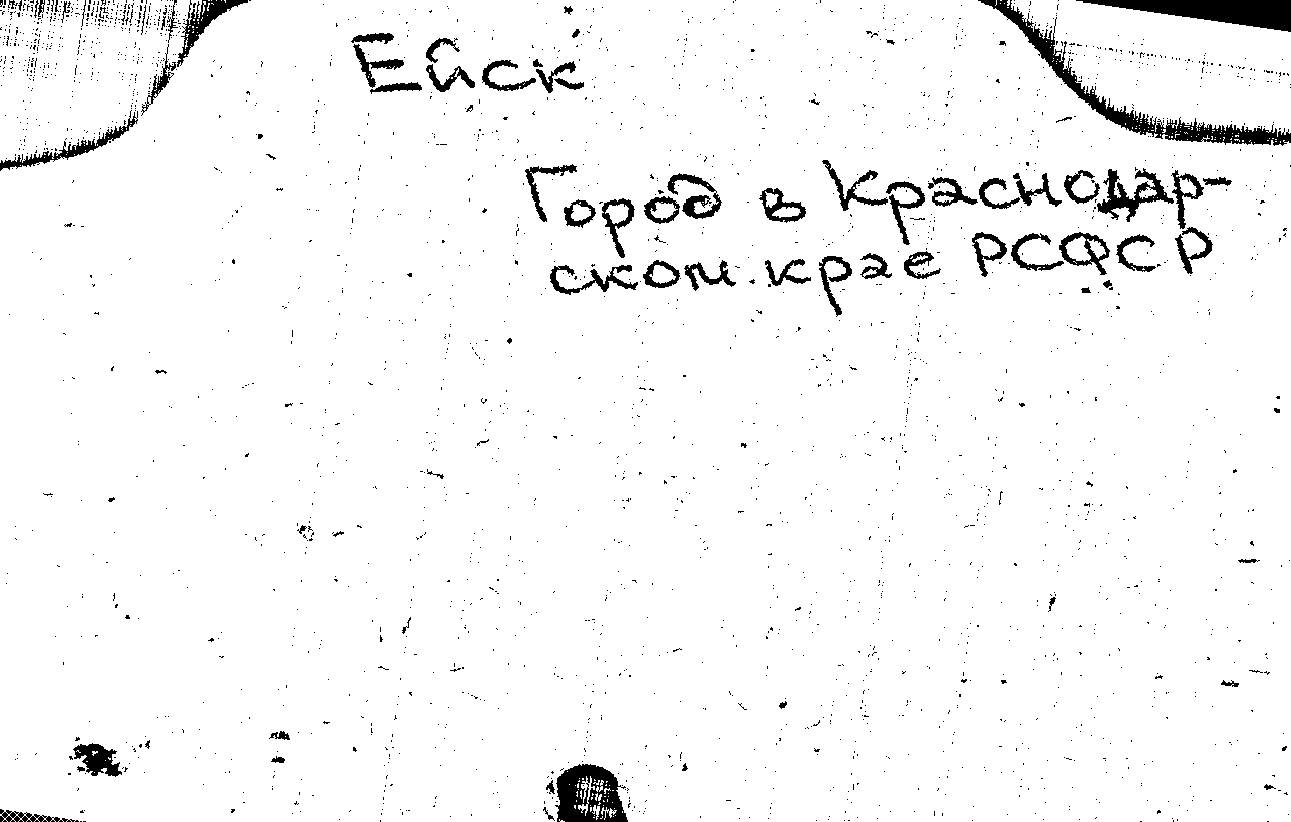 Ейск
Город в Краснодар-
ском.крае РСФСР